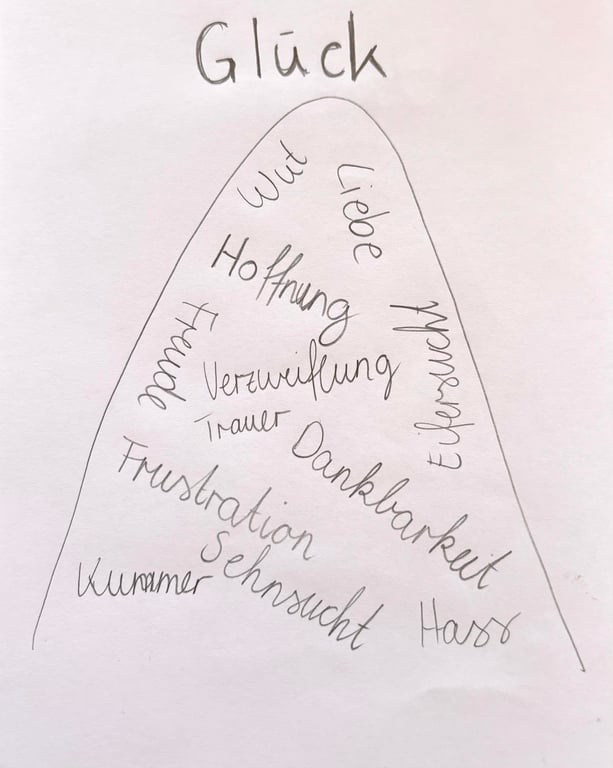 Glück
Wut
Liebe
Hoffnung
Freude
Eifersucht
Verzweiflung
Trauer
Dankbarkeit
Frustration
Sehnsucht
Kummer
Hass